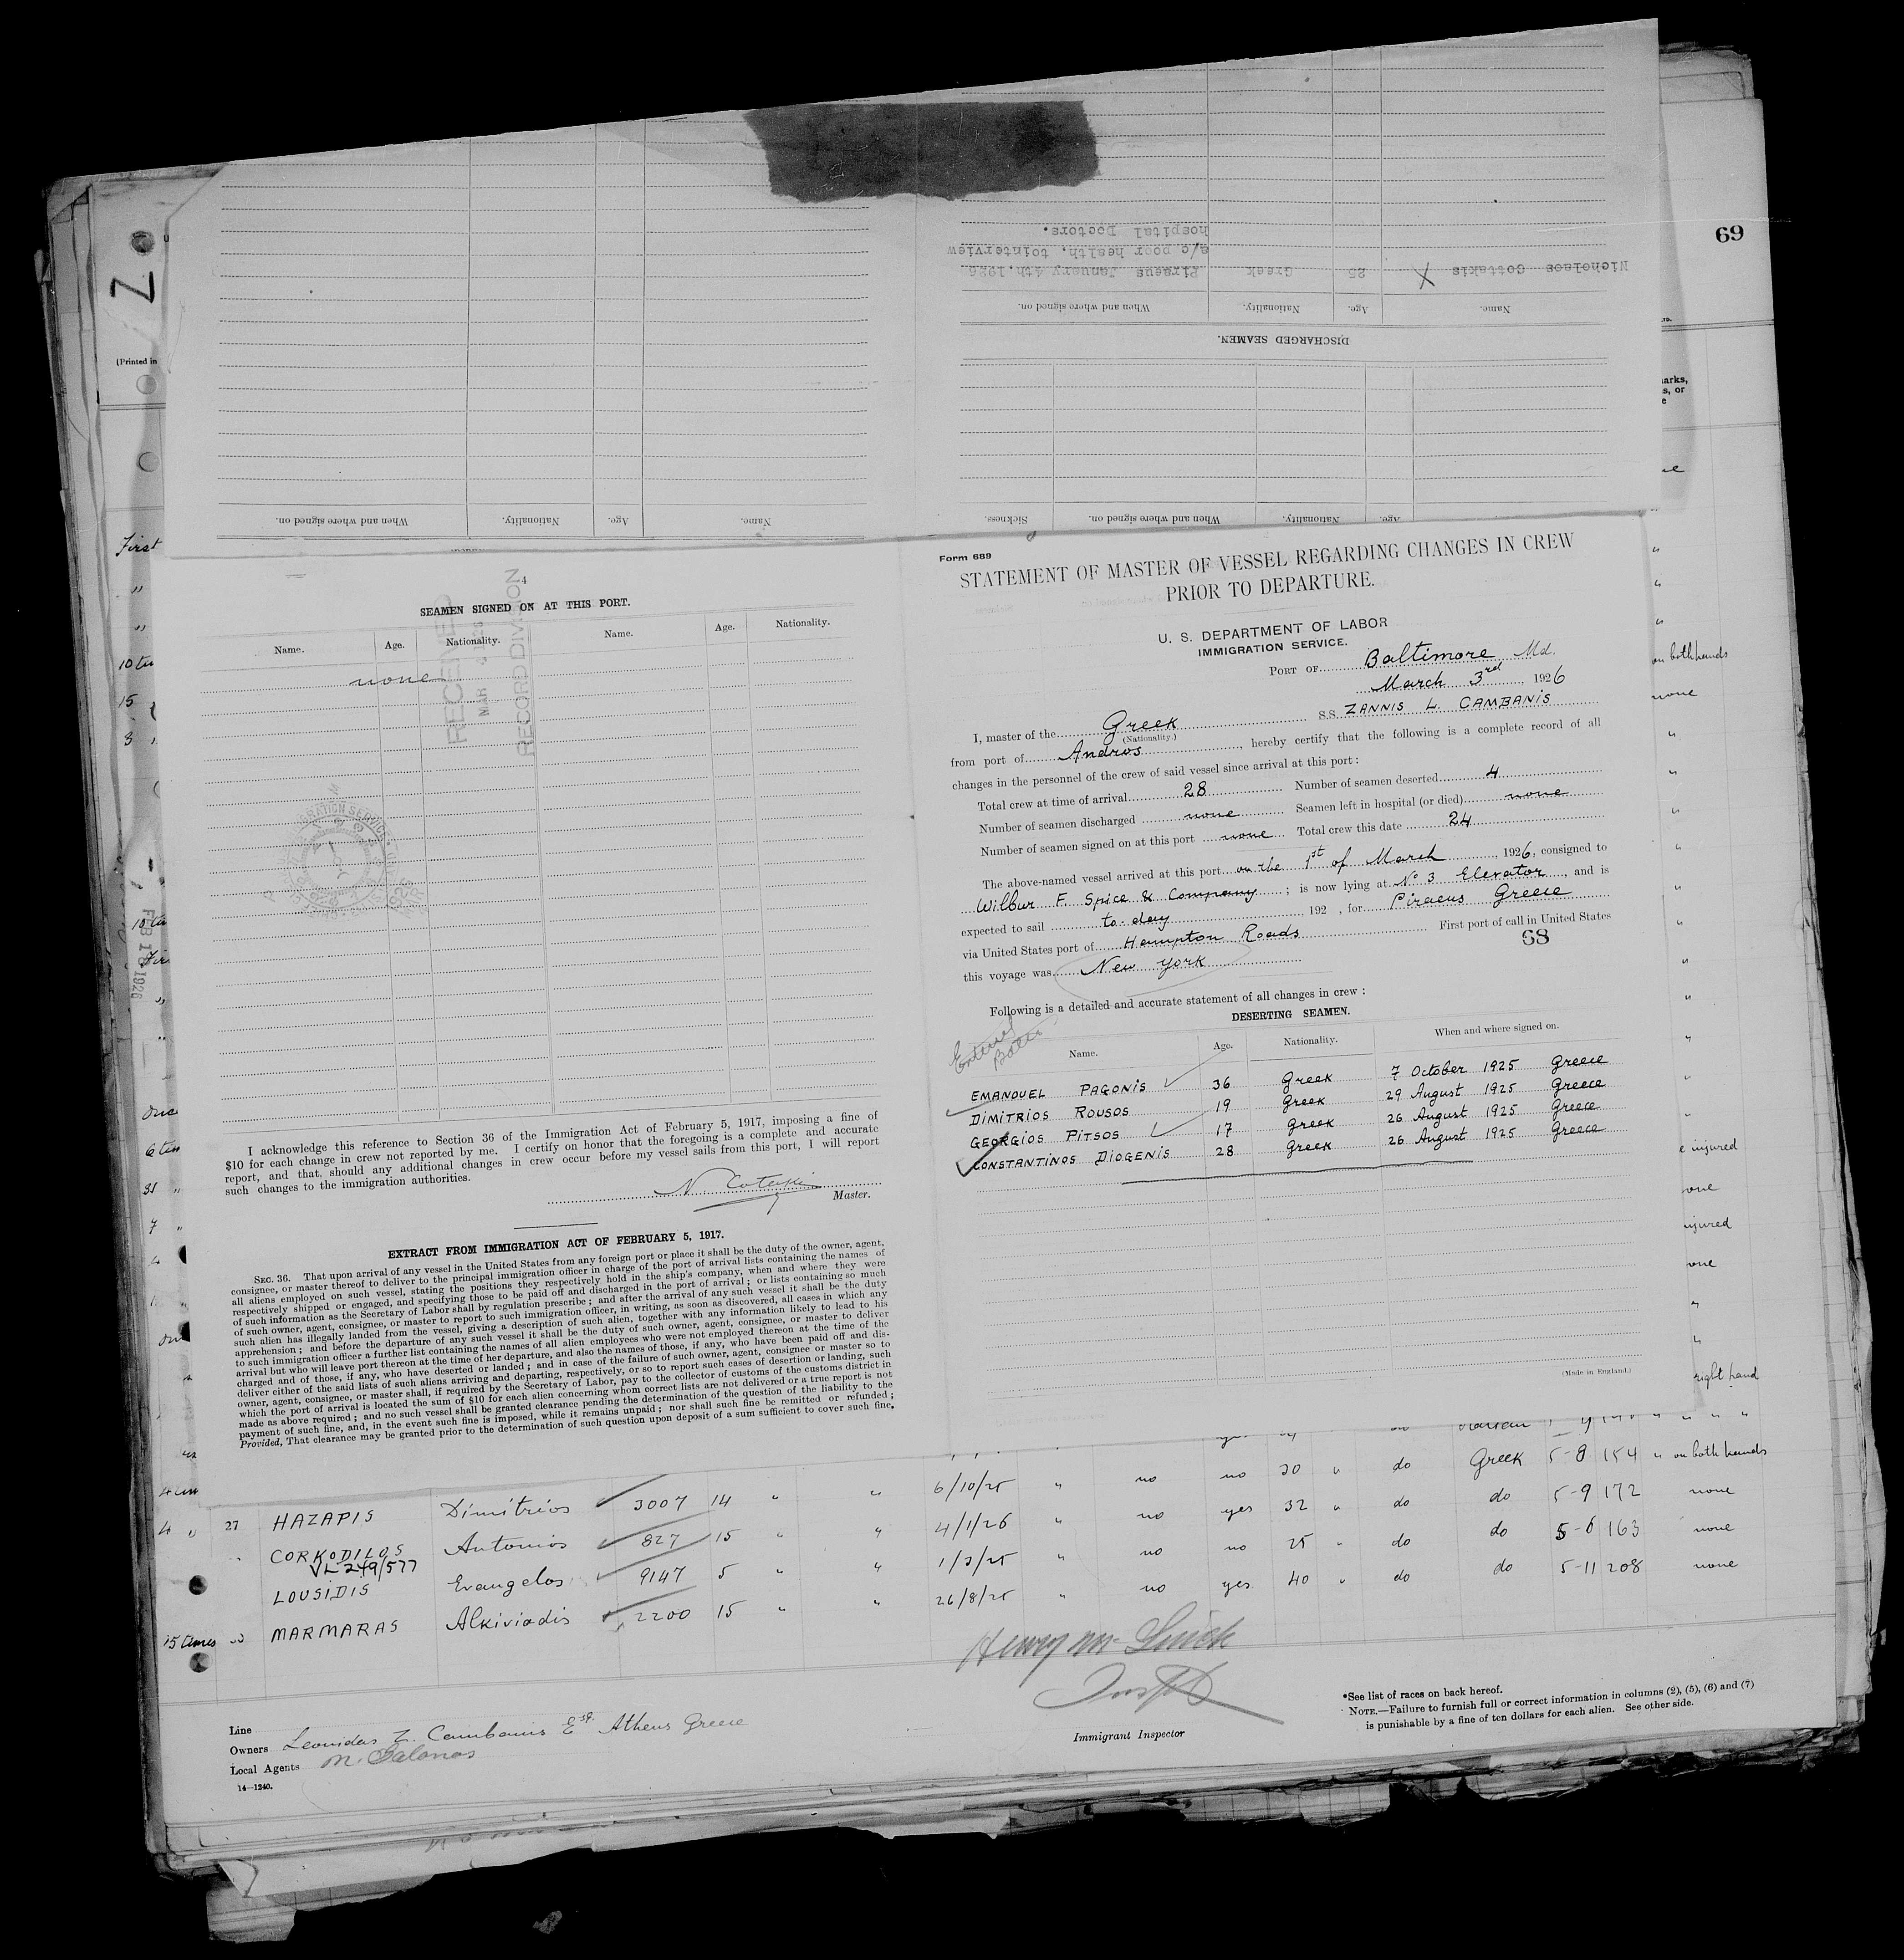 69
DISCHARGED SEAMEN.
Name. Age. Nationality. When and where signed on.
Nicholaos Cottakis X 25 Greek Piraeus January 4th.1926
a/c poor health, tointerview
hospital Doctors.
Name. Age. Nationality. When and where signed on.
Age. Nationality. When and where signed on. Sickness.
(Printed in
First
10
15
3
4
SEAMEN SIGNED ON AT THIS PORT.
Name. Age. Nationality. Name. Age. Nationality.
none
RECEIVED
MAR
RECORD DIVISION
I acknowledge this reference to Section 36 of the Immigration Act of February 5, 1917, imposing a fine of
$10 for each change in crew not reported by me. I certify on honor that the foregoing is a complete and accurate
report, and that, should any additional changes in crew occur before my vessel sails from this port, I will report
such changes to the immigration authorities.
Master.
EXTRACT FROM IMMIGRATION ACT OF FEBRUARY 5, 1917.
SEC. 36. That upon arrival of any vessel in the United States from any foreign port or place it shall be the duty of the owner, agent,
consignee, or master thereof to deliver to the principal immigration officer in charge of the port of arrival lists containing the names of
all aliens employed on such vessel, stating the positions they respectively hold in the ship's company, when and where they were
respectively shipped or engaged, and specifying those to be paid off and discharged in the port of arrival; or lists containing so much
of such information as the Secretary of Labor shall by regulation prescribe; and after the arrival of any such vessel it shall be the duty
of such owner, agent, consignee, or master to report to such immigration officer, in writing, as soon as discovered, all cases in which any
such alien has illegally landed from the vessel, giving a description of such alien, together with any information likely to lead to his
apprehension; and before the departure of any such vessel it shall be the duty of such owner, agent, consignee, or master to deliver
to such immigration officer a further list containing the names of all alien employees who were not employed thereon at the time of the
arrival but who will leave port thereon at the time of her departure, and also the names of those, if any, who have been paid off and dis-
charged and of those, if any, who have deserted or landed; and in case of the failure of such owner, agent, consignee or master so to
deliver either of the said lists of such aliens arriving and departing, respectively, or so to report such cases of desertion or landing, such
owner, agent, consignee, or master shall, if required by the Secretary of Labor, pay to the collector of customs of the customs district in
which the port of arrival is located the sum of $10 for each alien concerning whom correct lists are not delivered or a true report is not
made as above required; and no such vessel shall be granted clearance pending the determination of the question of the liability to the
payment of such fine, and, in the event such fine is imposed, while it remains unpaid; nor shall such fine be remitted or refunded;
Provided, That clearance may be granted prior to the determination of such question upon deposit of a sum sufficient to cover such fine.
Form 689
STATEMENT OF MASTER OF VESSEL REGARDING CHANGES IN CREW
PRIOR TO DEPARTURE.
U. S. DEPARTMENT OF LABOR
IMMIGRATION SERVICE.
PORT OF Baltimore Md.
March 3rd, 1926
I, master of the Greek S.S. ZANNIS L. CAMBANIS
(Nationality.)
from port of Andros, hereby certify that the following is a complete record of all
changes in the personnel of the crew of said vessel since arrival at this port:
Total crew at time of arrival 28 Number of seamen deserted 4
Number of seamen discharged none Seamen left in hospital (or died) none
Number of seamen signed on at this port none Total crew this date 24
The above-named vessel arrived at this port on the 1st of March, 1926, consigned to
Wilbur F. Spice & Company; is now lying at No 3 Elevator, and is
expected to sail to-day, 192 , for Piraeus Greece
via United States port of Hampton Roads First port of call in United States
this voyage was New York
68
Following is a detailed and accurate statement of all changes in crew:
DESERTING SEAMEN.
Name. Age. Nationality. When and where signed on.
EMANOUEL PAGONIS 36 Greek 7 October 1925 Greece
DIMITRIOS ROUSOS 19 Greek 29 August 1925 Greece
GEORGIOS PITSOS 17 Greek 26 August 1925 Greece
CONSTANTINOS DIOGENIS 28 Greek 26 August 1925 Greece
(Made in England.)
on both hands
none
injured
right hand
6/10/25 " no no 30 " do Greek 5-8 154 " on both hands
27 HAZAPIS Dimitrios 3007 14 " " 4/1/26 " no yes 32 " do do 5-9 172 none
CORKODILOS Antonios 827 15 " " 1/2/25 " no no 25 " do do 5-6 163 none
VL 249/577
LOUSIDIS Evangelos 9147 5 " " 26/8/25 " no yes 40 " do do 5-11 208 none
15 times MARMARAS Alkiviadis 2200 15 "
Immigrant Inspector
*See list of races on back hereof.
NOTE.—Failure to furnish full or correct information in columns (2), (5), (6) and (7)
is punishable by a fine of ten dollars for each alien. See other side.
Line
Owners Leonidas Z. Cambanis Esq. Athens Greece
Local Agents
14—1240.